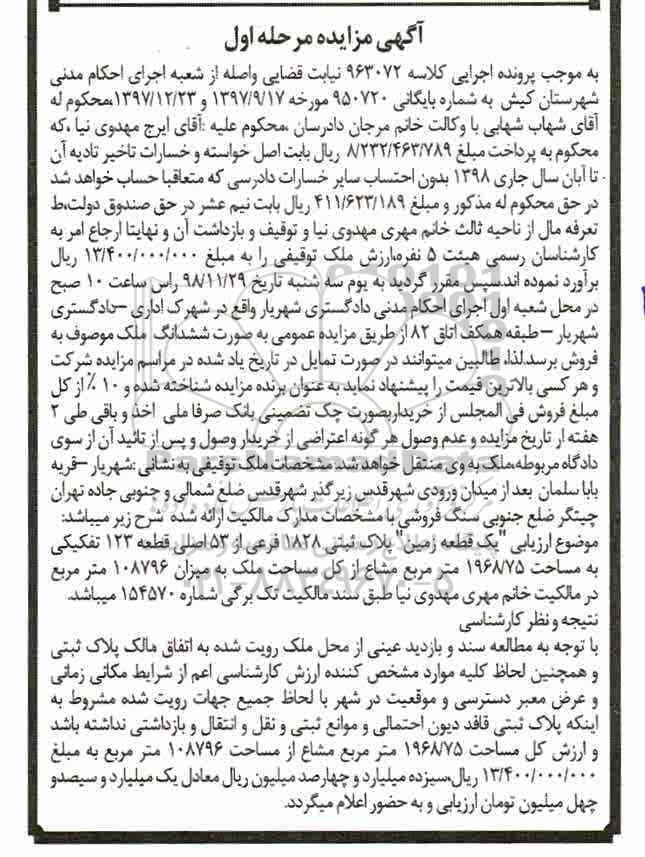 آگهی مزایده مرحله اول
به موجب پرونده اجرایی کلاسه ۹۶۳۰۷۲ نیابت قضایی واصله از شعبه اجرای احکام مدنی
شهرستان کیش به شماره بایگانی ۹۵۰۷۲۰ مورخه ۱۳۹۷/۹/۱۷ و ۱۳۹۷/۱۲/۲۳،محکوم له
آقای شهاب شهابی با وکالت خانم مرجان دادرسان ،محکوم علیه :آقای ایرج مهدوی نیا ،که
محکوم به پرداخت مبلغ ۸/۲۳۲/۴۶۳/۷۸۹ ریال بابت اصل خواسته و خسارات تاخیر تادیه آن
تا آبان سال جاری ۱۳۹۸ بدون احتساب سایر خسارات دادرسی که متعاقبا حساب خواهد شد
در حق محکوم له مذکور و مبلغ ۴۱۱/۶۲۳/۱۸۹ ریال بابت نیم عشر در حق صندوق دولت،ط
تعرفه مال از ناحیه ثالث خانم مهری مهدوی نیا و توقیف و بازداشت آن و نهایتا ارجاع امر به
کارشناسان رسمی هیئت ۵ نفره،ارزش ملک توقیفی را به مبلغ ۱۳/۴۰۰/۰۰۰/۰۰۰ ریال
برآورد نموده اند.سپس مقرر گردید به یوم سه شنبه تاریخ ۹۸/۱۱/۲۹ راس ساعت ۱۰ صبح
در محل شعبه اول اجرای احکام مدنی دادگستری شهریار واقع در شهرک اداری –دادگستری
شهریار – طبقه همکف اتاق ۸۲ از طریق مزایده عمومی به صورت ششدانگ ملک موصوف به
فروش برسد.لذا، طالبین میتوانند در صورت تمایل در تاریخ یاد شده در مراسم مزایده شرکت
و هر کسی بالاترین قیمت را پیشنهاد نماید به عنوان برنده مزایده شناخته شده و ۱۰ ٪ از کل
مبلغ فروش فی المجلس از خریداربصورت چک تضمینی بانک صرفا ملی اخذ و باقی طی ۲
هفته از تاریخ مزایده و عدم وصول هر گونه اعتراضی از خریدار وصول و پس از تائید آن از سوی
دادگاه مربوطه،ملک به وی منتقل خواهد شد. مشخصات ملک توقیفی به نشانی :شهریار –قریه
بابا سلمان بعد از میدان ورودی شهرقدس زیر گذر شهرقدس ضلع شمالی و جنوبی جاده تهران
چیتگر ضلع جنوبی سنگ فروشی با مشخصات مدارک مالکیت ارائه شده شرح زیر میباشد:
موضوع ارزیابی "یک قطعه زمین" پلاک ثبتی ۱۸۲۸ فرعی از ۵۳ اصلی قطعه ۱۲۳ تفکیکی
به مساحت ۱۹۶۸/۷۵ متر مربع مشاع از کل مساحت ملک به میزان ۱۰۸۷۹۶ متر مربع
در مالکیت خانم مهری مهدوی نیا طبق سند مالکیت تک برگی شماره ۱۵۴۵۷۰ میباشد.
نتیجه و نظر کارشناسی
با توجه به مطالعه سند و بازدید عینی از محل ملک رویت شده به اتفاق مالک پلاک ثبتی
و همچنین لحاظ کلیه موارد مشخص کننده ارزش کارشناسی اعم از شرایط مکانی زمانی
و عرض معبر دسترسی و موقعیت در شهر با لحاظ جمیع جهات رویت شده مشروط به
اینکه پلاک ثبتی فاقد دیون احتمالی و موانع ثبتی و نقل و انتقال و بازداشتی نداشته باشد
و ارزش کل مساحت ۱۹۶۸/۷۵ متر مربع مشاع از مساحت ۱۰۸۷۹۶ متر مربع به مبلغ
۱۳/۴۰۰/۰۰۰/۰۰۰ ریال،سیزده میلیارد و چهارصد میلیون ریال معادل یک میلیارد و سیصدو
چهل میلیون تومان ارزیابی و به حضور اعلام میگردد.